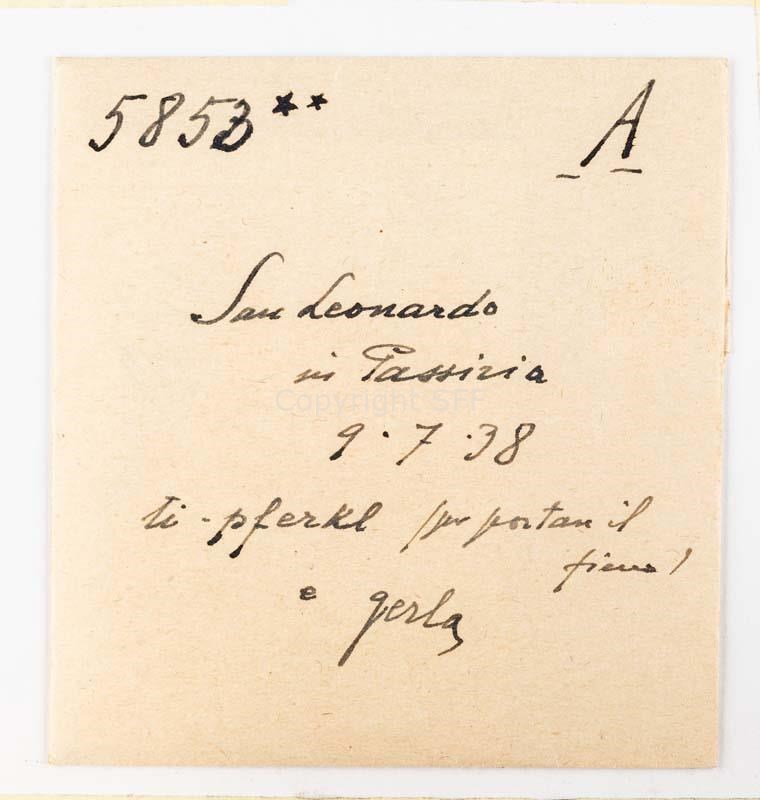 5853** A
San Leonardo
in Passiria
9.7.38
ti-pferkl (per portar il
fieno)
e gerla
Copyright SFF